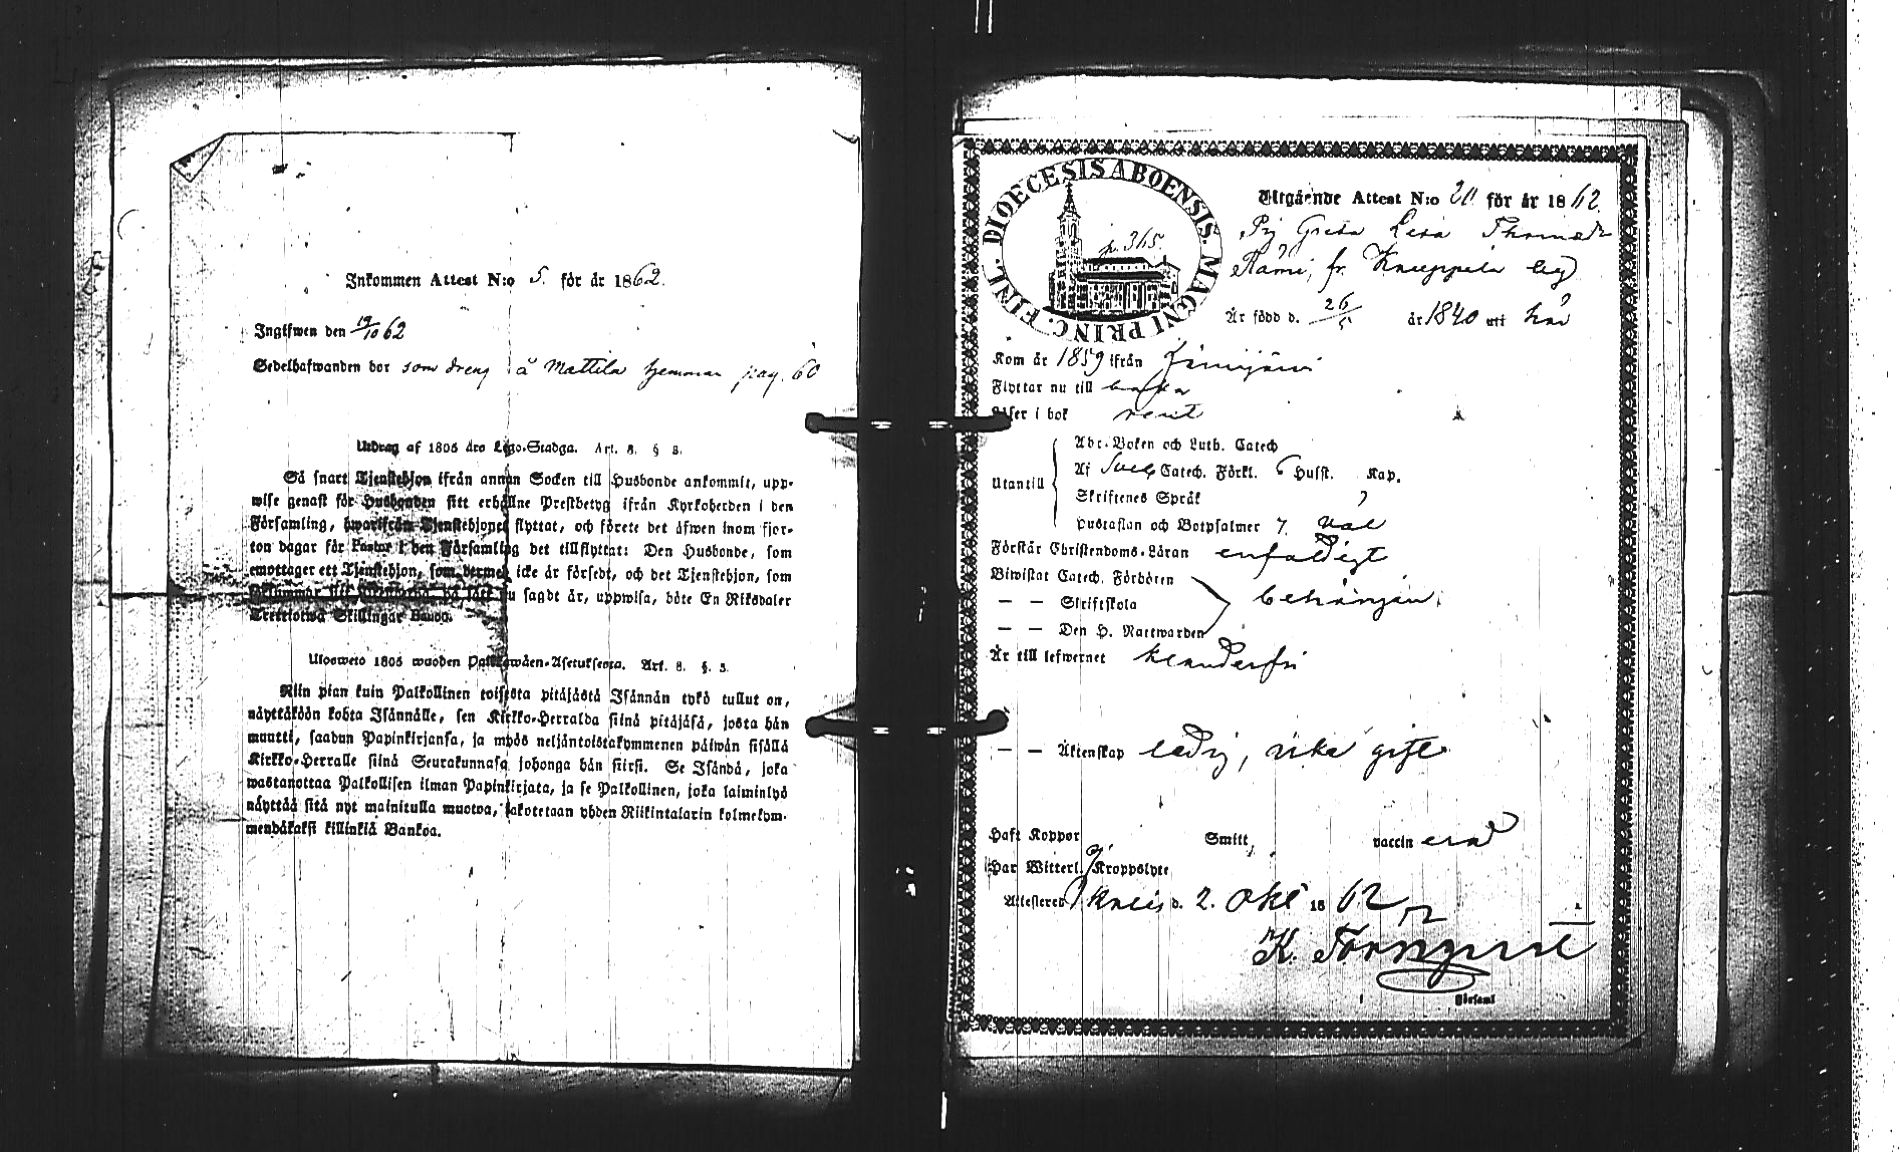 Inkommen Attest N:o 5. för år 1862.
Ingifwen den 19/10 62
Sedelhafwanden bor som dreng å Mattila hemman pag. 60
Utdrag af 1805 års Lego-Stadga. Art. 8. § 3.
Så snart Tjenstehjon ifrån annan Socken till Husbonde ankommit, upp-
wise genast för Husbonden sitt erhållne Prestbetyg ifrån Kyrkoherden i den
Församling, hwarifrån Tjenstehjonet flyttat, och förete det äfwen inom fjor-
ton dagar för Pastor i den Församling det tillflyttat: Den Husbonde, som
emottager ett Tjenstehjon, som dermed icke är försedt, och det Tjenstehjon, som
sagdt är, uppwisa, böte En Riksdaler
Trettiotwå Skillingar Banco.
Ulosweto 1805 wuoden Palkkawäen-Asetuksesta. Art. 8. §. 3.
Niin pian kuin Palkollinen toisesta pitäjästä Isännän tykö tullut on,
näyttäköön kohta Isännälle, sen Kirkko-Herralda siinä pitäjäsä, josta hän
muutti, saadun Papinkirjansa, ja myös neljäntoistakymmenen päiwän sisällä
Kirkko-Herralle siinä Seurakunnasa johonga hän siirsi. Se Isändä, joka
wastanottaa Palkollisen ilman Papinkirjata, ja se Palkollinen, joka laiminlyö
näyttää sitä nyt mainitulla muotoa, sakotetaan yhden Riikintalarin kolmekym-
mendäkaksi killinkiä Bankoa.
DIOECESIS ABOENSIS. MAGNI PRINC. FINL.
p. 365.
Utgående Attest N:o 20 för år 1862.
Pig Greta Lisa Thomasdr
Rämi, fr.
Är född d. 26/5 år 1840
Kom år 1859 ifrån Jämijärvi
Flyttar nu till
Läser i bok rent
Utantill
Abc-Boken och Luth. Catech
Af Sveb Catech. Förkl. 6 Husst. Kap.
Skriftenes Språk
Hustaflan och Botpsalmer 7. väl
Förstår Christendoms-Läran enfaldigt
Biwistat Catech. Förhören
— — Skriftskola
— — Den H. Nattwarden
behörigen.
Är till lefwernet klanderfri
— — Äktenskap ledig, icke gift
Haft Koppor Smitt, vaccin erad
Har Witterl. Kroppslyte
Attesteras Ikalis d. 2. Okt 1862
K. Törnqvist
Församl